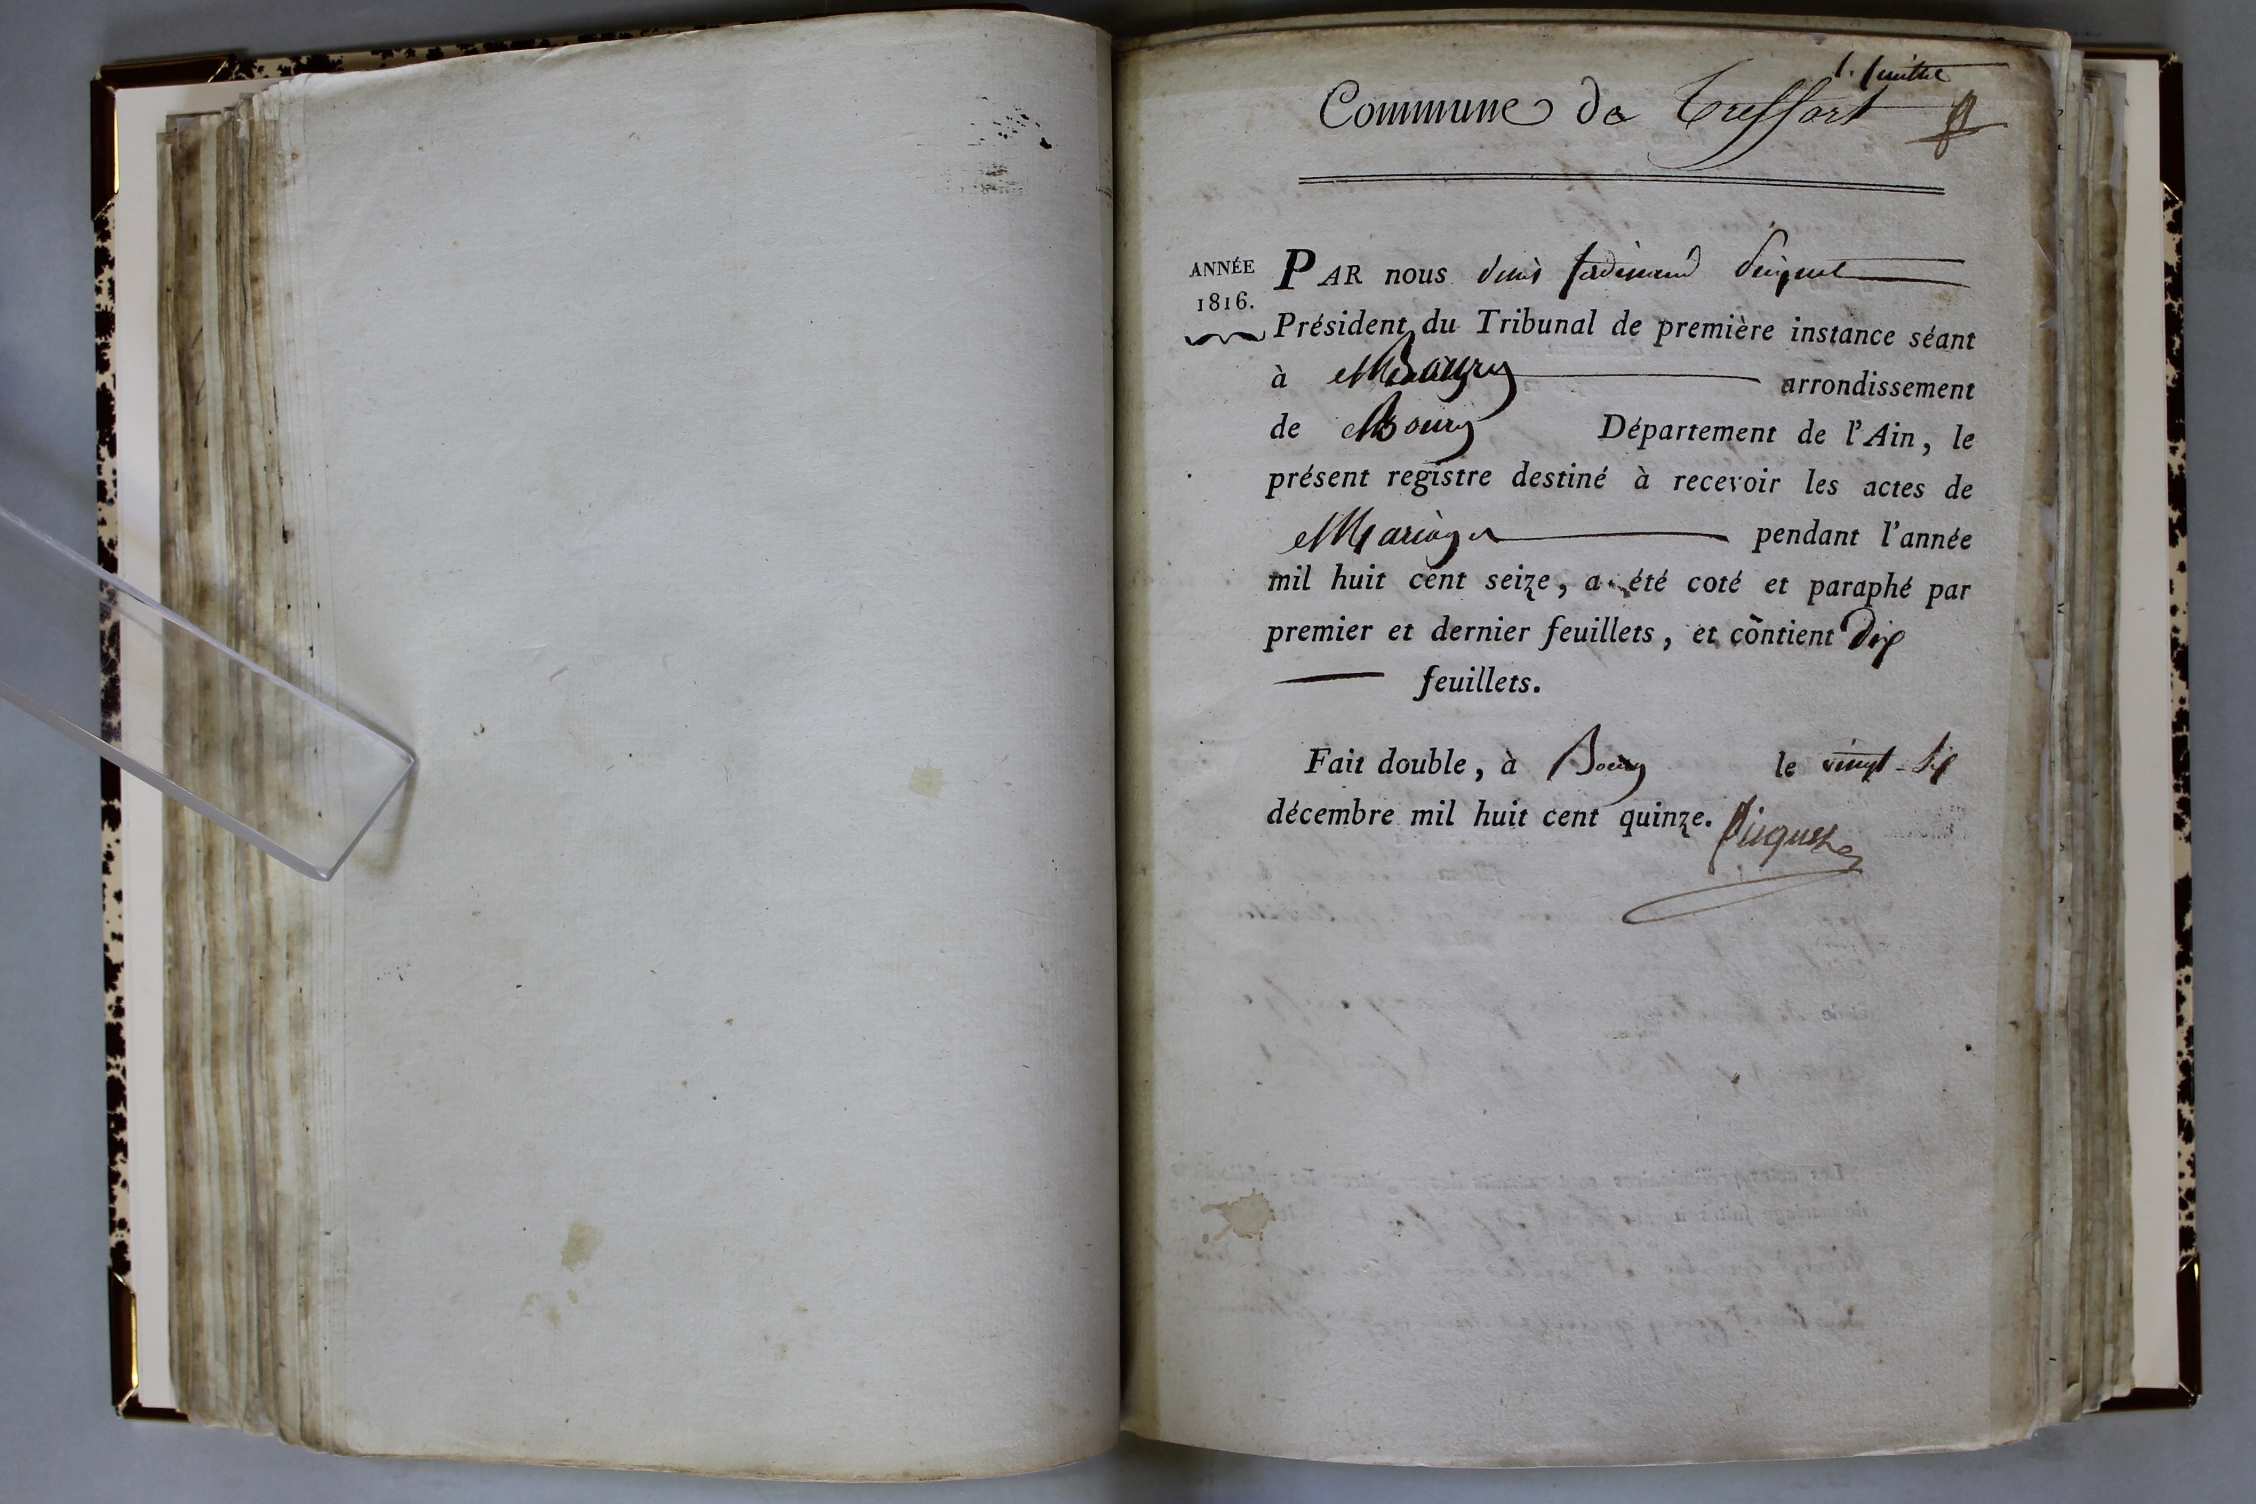 1. feuillet
Commune de Treffort
ANNÉE
1816.
PAR nous denis ferdinand
Président du Tribunal de première instance séant
à Bourg arrondissement
de Bourg Département de l'Ain, le
présent registre destiné à recevoir les actes de
Mariages pendant l'année
mil huit cent seize, a été coté et paraphé par
premier et dernier feuillets, et contient dix
feuillets.
Fait double, à Bourg le vingt-six
décembre mil huit cent quinze.